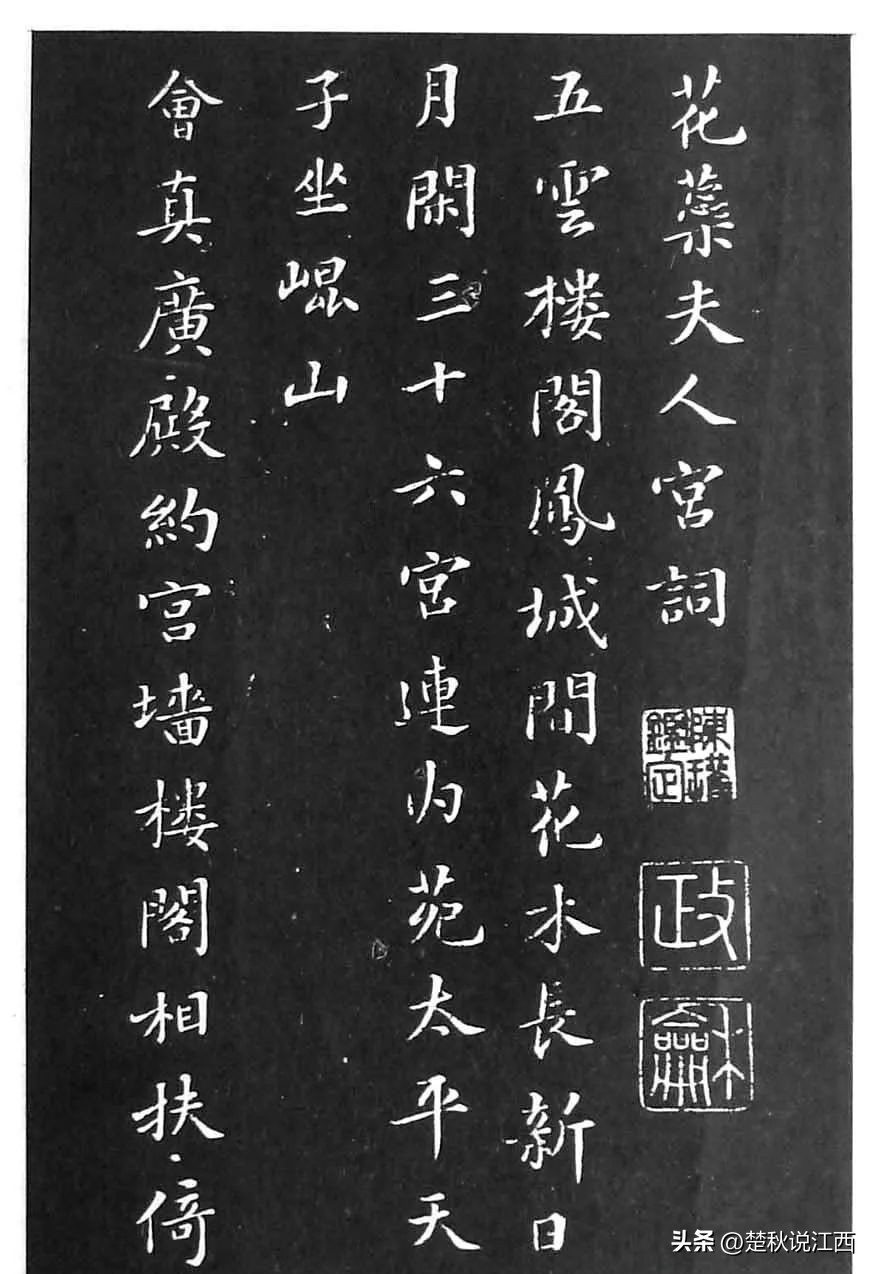 花蘂夫人宮詞
政
龢
五雲楼閣鳳城間花木長新日
月閑三十六宮連内苑太平天
子坐崐山
會真廣殿約宮墻楼閣相扶倚
头条 @楚秋说江西